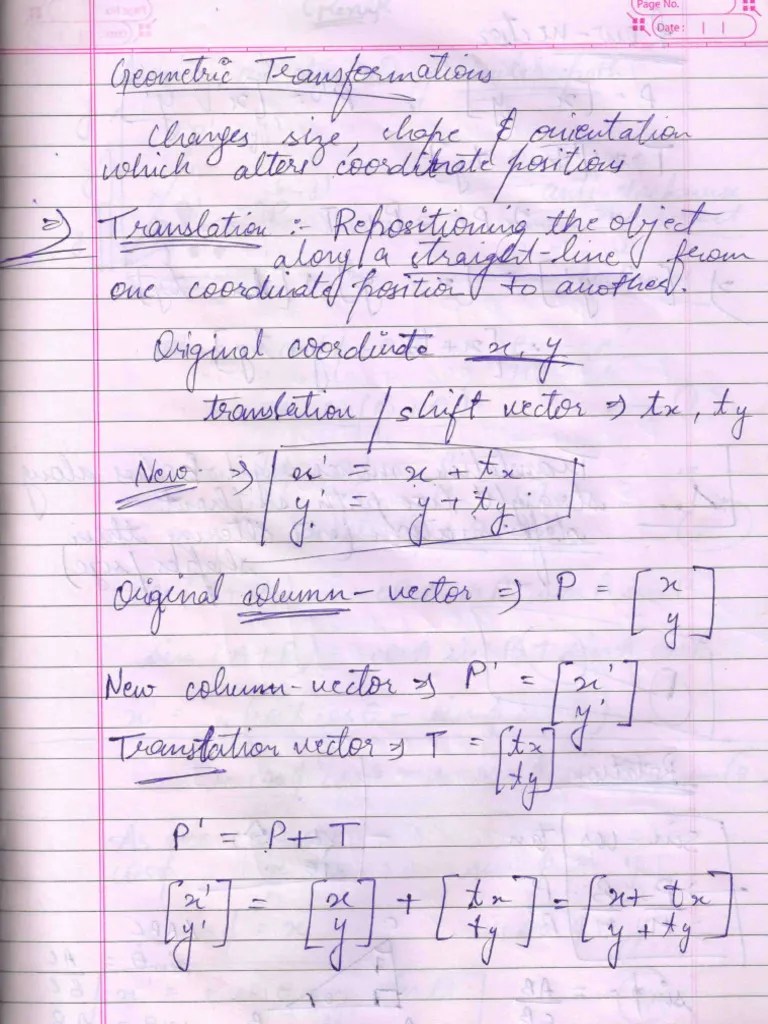 Page No.
Date : | |
Geometric Transformations
Changes size, shape & orientation
which alters coordinate positions
⇒ Translation :- Repositioning the object
along a straight-line from
one coordinate position to another.
Original coordinate x, y
translation / shift vector ⇒ tx, ty
New ⇒ x' = x + tx
y' = y + ty
Original column-vector ⇒ P = [x
y]
New column-vector ⇒ P' = [x'
y']
Translation vector ⇒ T = [tx
ty]
P' = P + T
[x'] = [x] + [tx] = [x + tx]
[y'] [y] [ty] [y + ty]